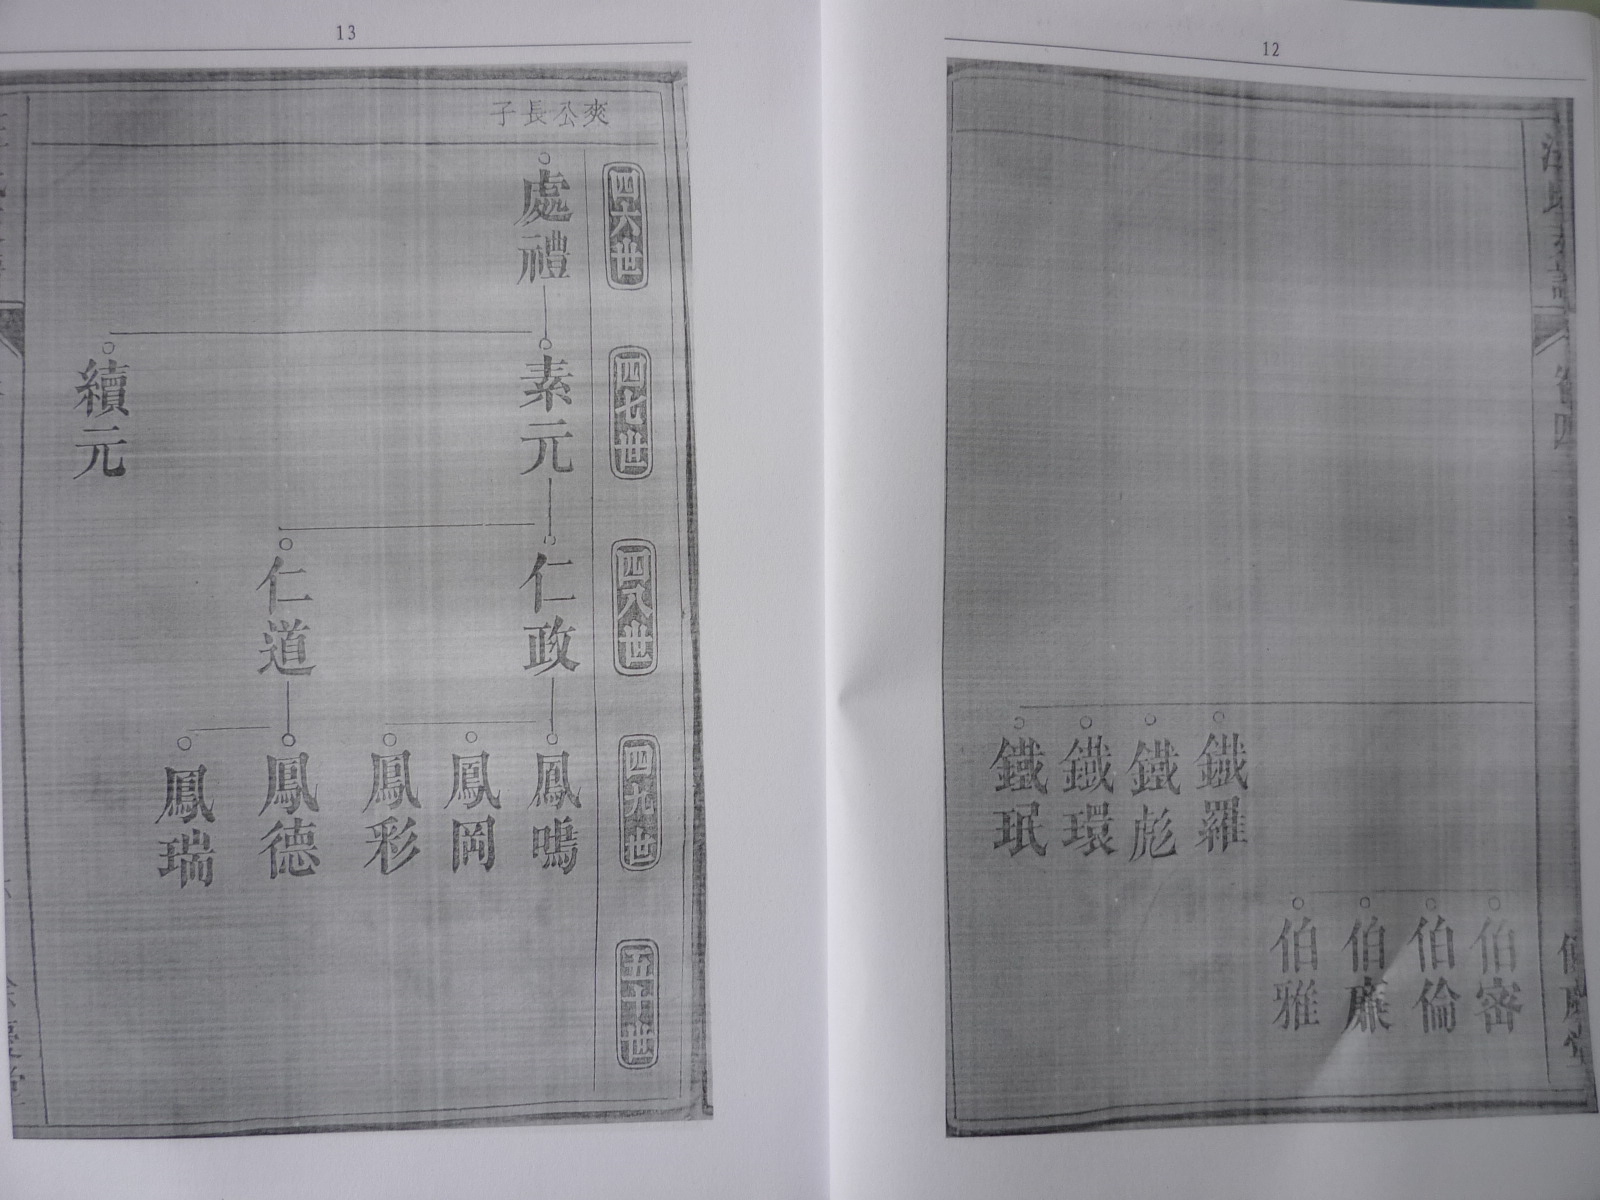 12
卷四
鐵羅
鐵彪
鐵環
鐵珉
伯審
伯倫
伯廉
伯雅
13
爽公長子
四六世
處禮
四七世
素元
續元
四八世
仁政
仁道
四九世
鳳鳴
鳳岡
鳳彩
鳳德
鳳瑞
五十世